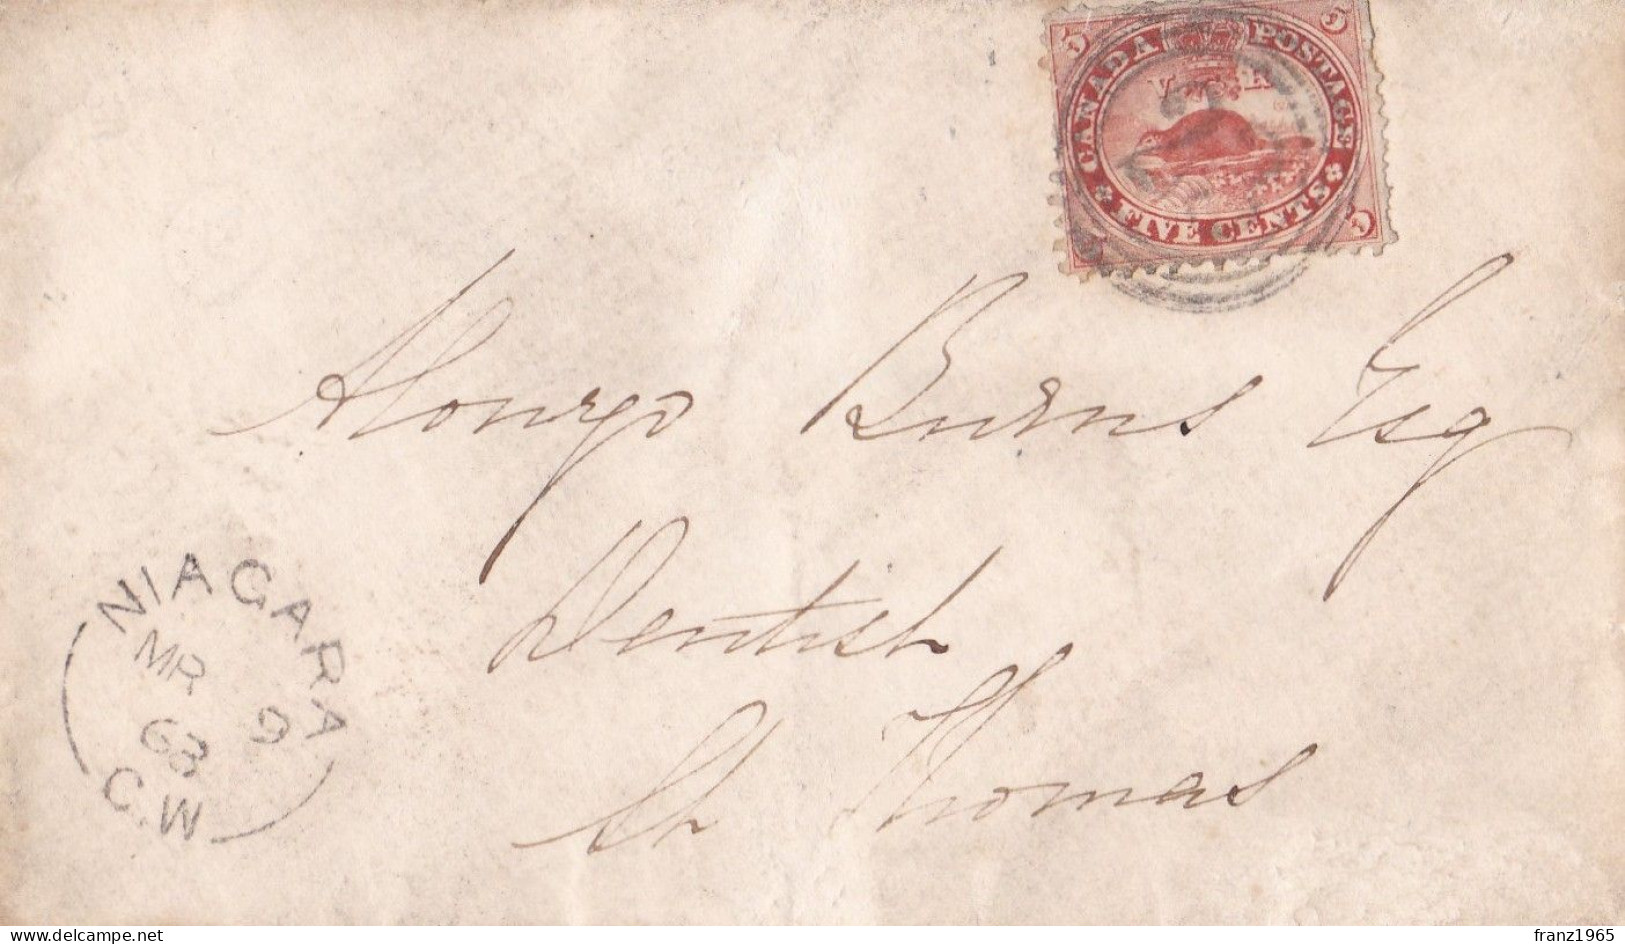 5 5
CANADA POSTAGE
V R
FIVE CENTS
5 5
Alonzo Burns Esq
Dentist
St Thomas
NIAGARA
MR 9
63
C.W
delcampe.net
franz1965